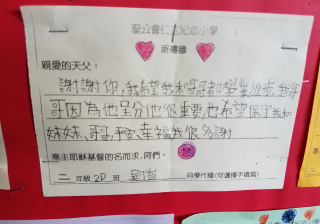 聖公會仁立紀念小學
祈禱牆
親愛的天父:
謝謝你,我希望我和哥哥都學業進步,我哥
哥因為他呈分他很重要,也希望保守我和
妹妹、哥哥平安、幸福我很多謝
奉主耶穌基督的名而求,阿們。
二 年級 2D 班
同學代禱(可選擇不填寫)